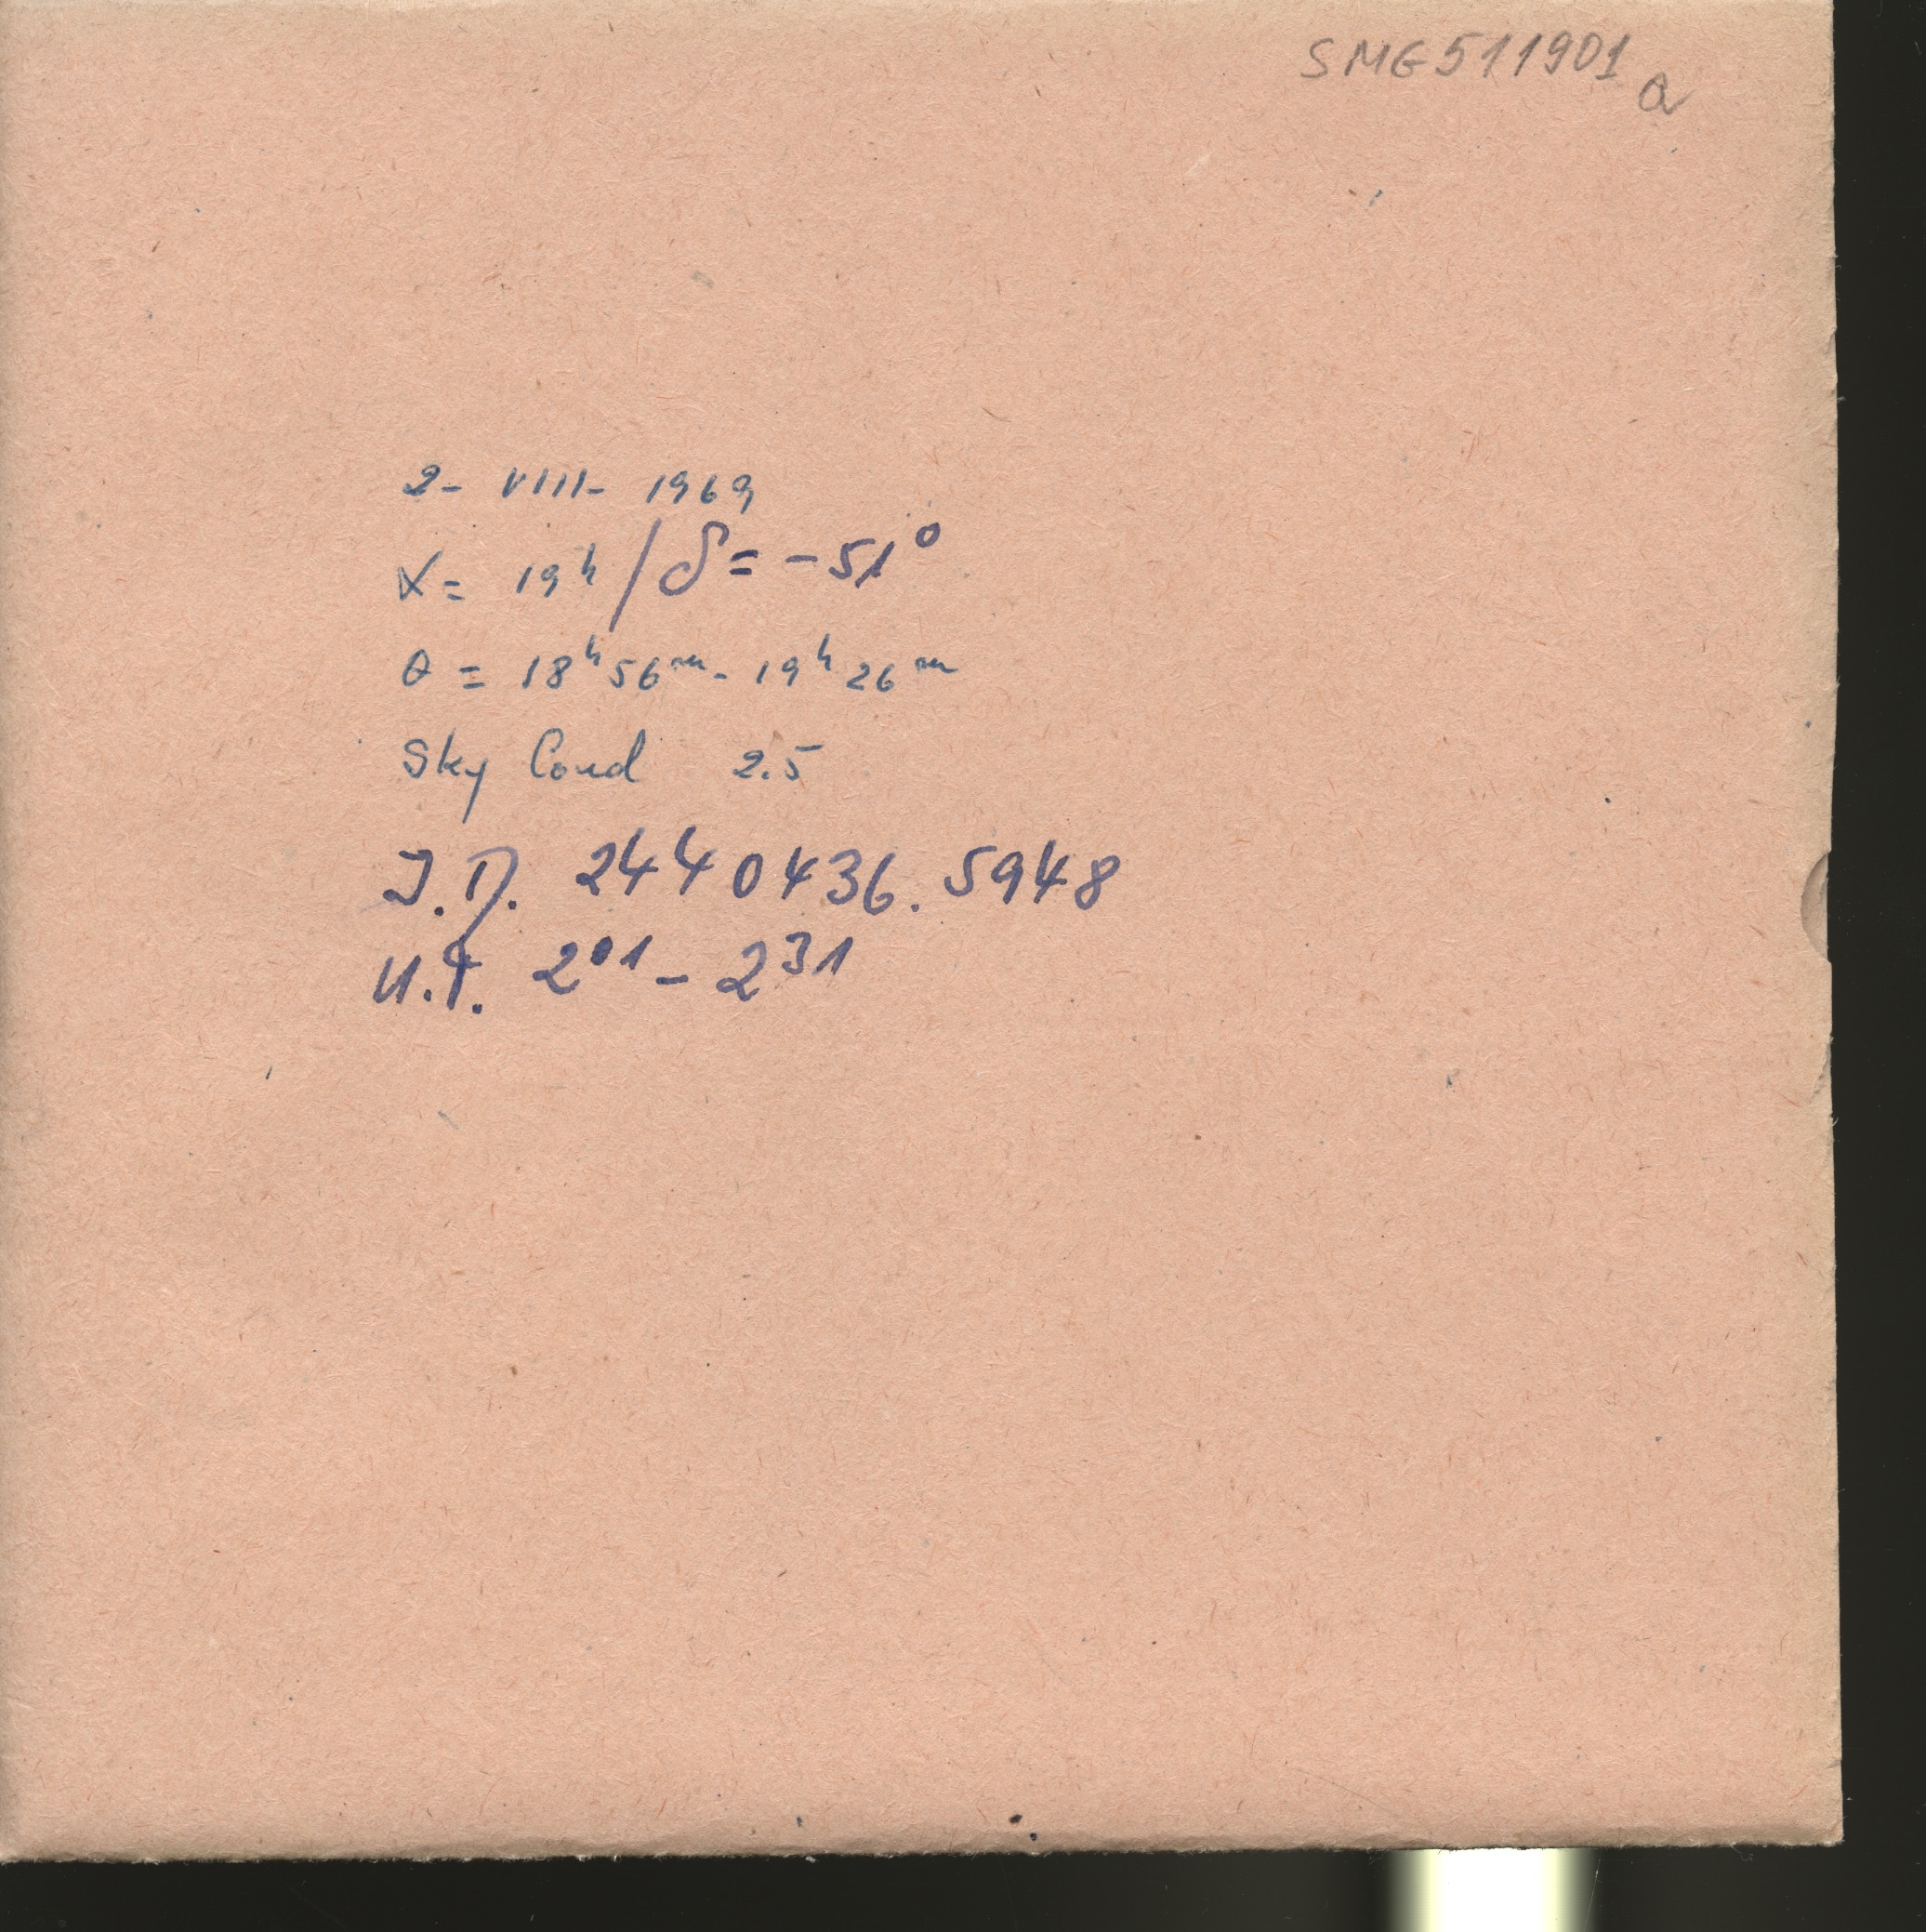 SMG511901a
2- VIII- 1969
α= 19ʰ / δ= -51⁰
θ = 18ʰ56ᵐ- 19ʰ26ᵐ
Sky Cond 2.5
J.D. 2440436.5948
U.T. 2⁰¹- 2³¹